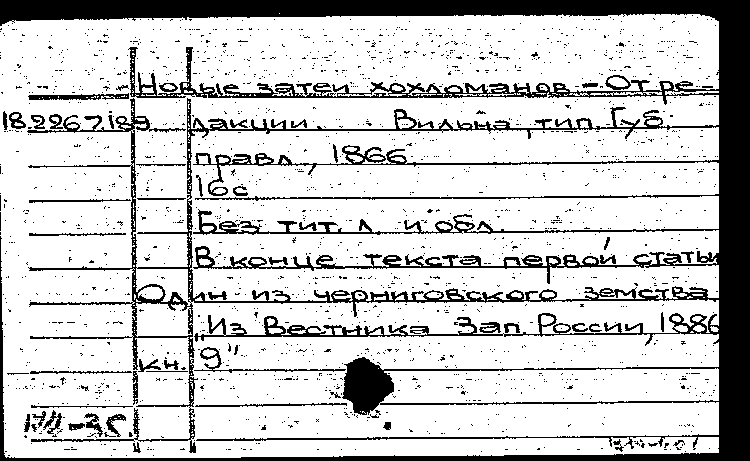 Новые затеи хохломанов. - От ре-
18.226.7.189 дакции. Вильна, тип. Губ.
правл., 1866.
16с.
Без тит. л. и обл.
В конце текста первой статьи
Один из черниговского земства.
"Из Вестника Зап. России, 1886,
кн. 9"